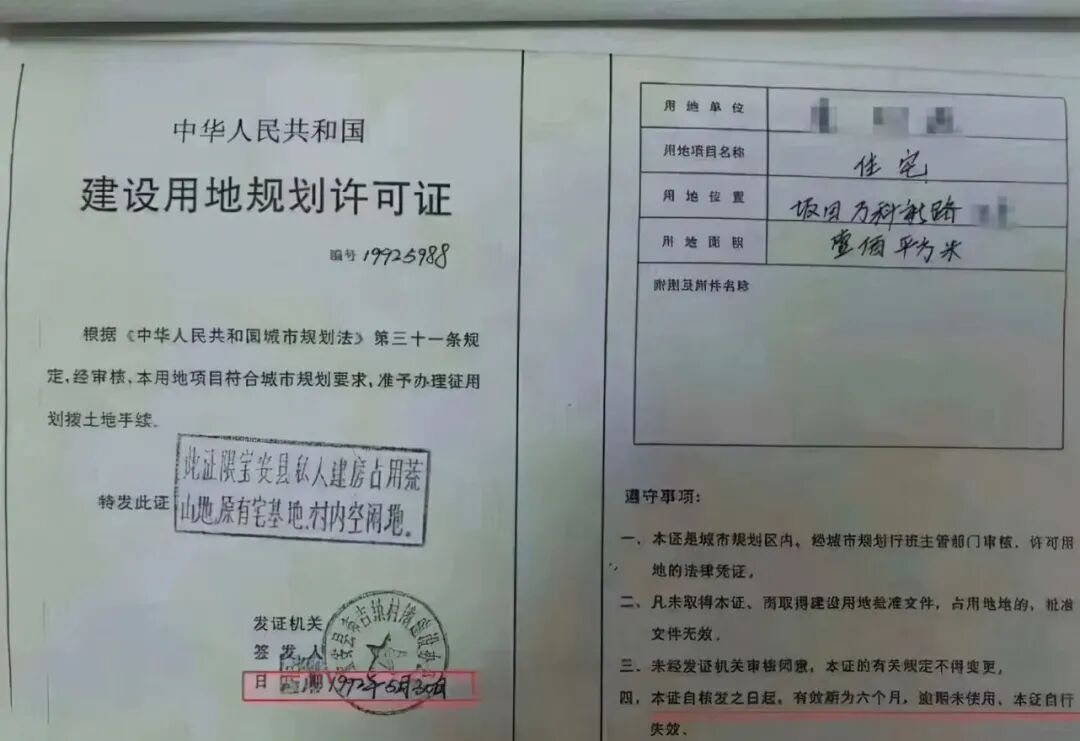 中华人民共和国
建设用地规划许可证
编号 19925988
根据《中华人民共和国城市规划法》第三十一条规
定,经审核、本用地项目符合城市规划要求,准予办理征用
划拨土地手续。
特发此证
此证限宝安县私人建房占用荒
山地、原有宅基地、村内空闲地。
发证机关
签发人
日期 1992年5月30日
用地单位
用地项目名称 住宅
用地位置 坂田万科新路
用地面积 壹佰平方米
附图及附件名称
遵守事项:
一、本证是城市规划区内,经城市规划行政主管部门审核,许可用
地的法律凭证。
二、凡未取得本证、而取得建设用地批准文件、占用地地的,批准
文件无效。
三、未经发证机关审核同意,本证的有关规定不得变更,
四、本证自核发之日起,有效期为六个月,逾期未使用、本证自行
失效、